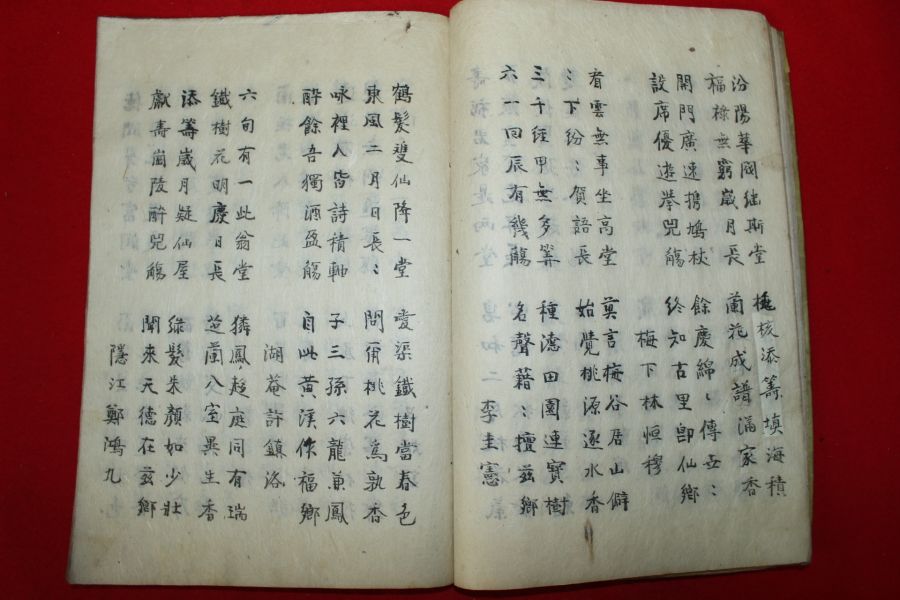 汾陽華閥継斯堂
福祿無窮歲月長
極核添籌塡海積
蘭花成譜滿家香
開門廣速携鳩杖
設席優遊擧兕觴
餘慶綿〻傳世:
終知古里卽仙鄕
梅下林恒穆
看雲無事坐高堂
:下紛:賀語長
莫言梅谷居山僻
始覺桃源逐水香
三千經甲無多筭
六一回辰有幾觴
種德田園連寶樹
名聲藉:擅玆鄕
李圭憲
鶴髮雙仙降一堂
東風二月日長:
愛渠鐵樹當春色
問爾桃花爲孰香
咏裡人皆詩積軸
酔餘吾獨酒盈觴
子三孫六龍兼鳳
自此黃溪作福鄕
湖菴許鎭洛
六旬有一此翁堂
鐵樹花明慶日長
獜鳳趍庭同有瑞
芝蘭八室異生香
添籌歲月疑仙屋
獻壽崗陵酔兕觴
綠髮朱顔如少壯
聞來天德在玆鄕
隱江鄭鴻九